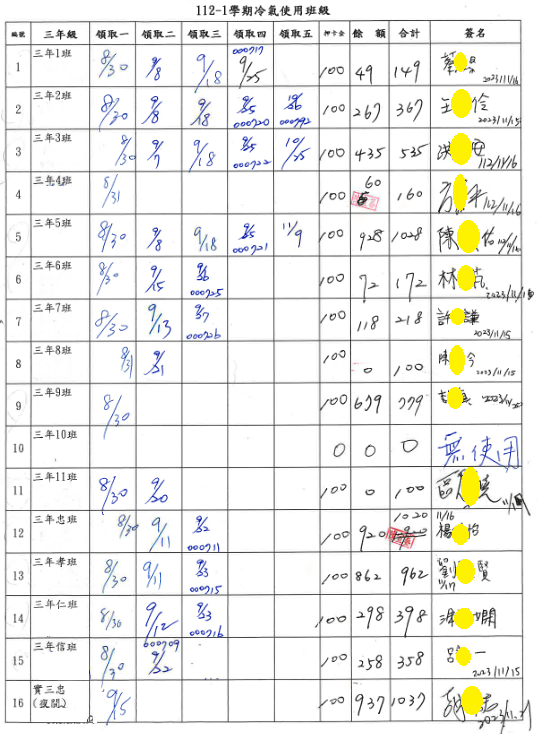 112-1學期冷氣使用班級
編號 三年級 領取一 領取二 領取三 領取四 領取五 押卡金 餘 額 合計 簽名
1 三年1班 8/30 9/8 9/18 000717 9/25 100 49 149 蔡 2023/11/16
2 三年2班 8/30 9/8 9/18 9/25 000720 000792 100 267 367 王 伶 2023/11/15
3 三年3班 8/30 9/7 9/18 9/25 000722 10/25 100 435 535 洪 112/11/16
4 三年4班 8/31 100 60 160 112/11/16
5 三年5班 8/30 9/8 9/18 9/25 000721 11/9 100 928 1028 陳
6 三年6班 8/30 9/15 9/26 000725 100 72 172 林
7 三年7班 8/30 9/13 9/27 000726 100 118 218 許 謙 2023/11/15
8 三年8班 8/31 9/21 100 0 100 陳 今 2023/11/15
9 三年9班 8/30 100 679 779
10 三年10班 0 0 0 無使用
11 三年11班 8/30 9/20 100 0 100
12 三年忠班 8/30 9/11 9/22 000711 100 920 1020 11/16 楊 怡
13 三年孝班 8/30 9/11 9/23 000715 100 862 962 劉 賢 11/17
14 三年仁班 8/30 9/12 9/23 000716 100 298 398
15 三年信班 8/30 000709 9/22 100 258 358 呂 一 2023/11/15
16 實三忠 (夜間) 9/5 100 937 1037